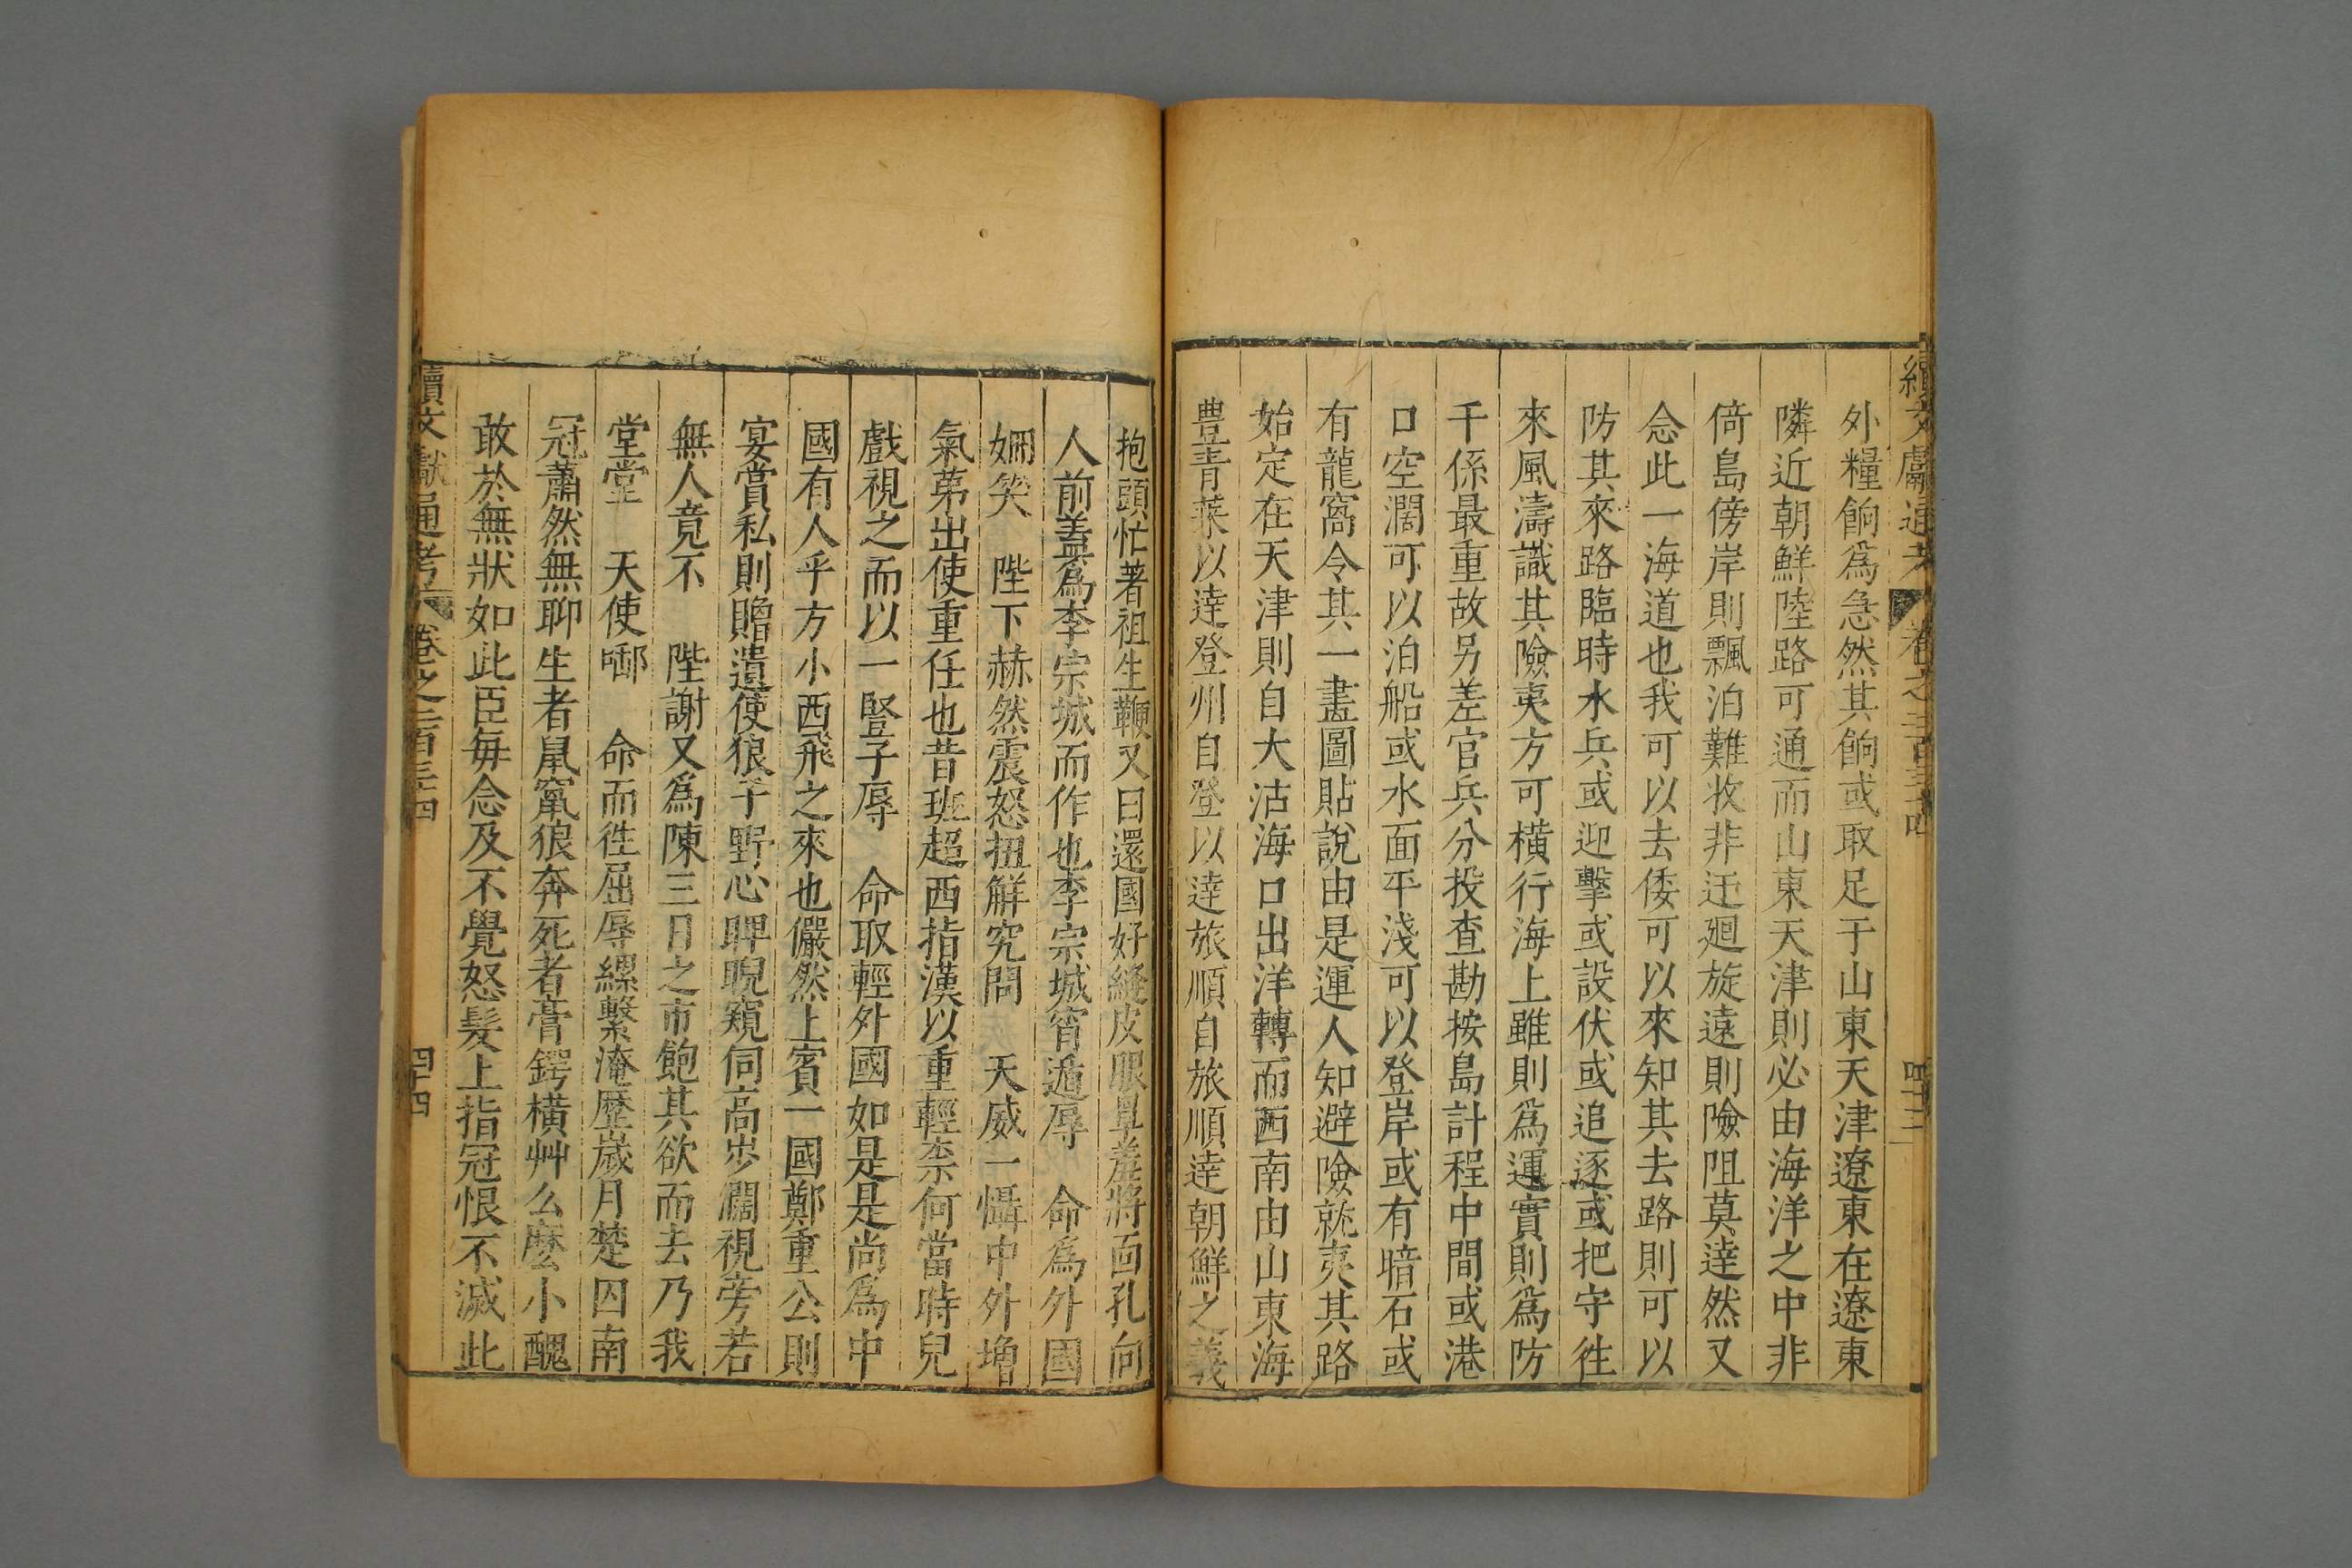 續文獻通考 卷之二百三十四 四十三
外糧餉爲急然其餉或取足于山東天津遼東在遼東
隣近朝鮮陸路可通而山東天津則必由海洋之中非
倚島傍岸則飄泊難收非迂廻旋遠則險阻莫逹然又
念此一海道也我可以去倭可以來知其去路則可以
防其來路臨時水兵或迎擊或設伏或追逐或把守徃
來風濤識其險夷方可橫行海上雖則爲運實則爲防
干係最重故另差官兵分投查勘按島計程中間或港
口空濶可以泊船或水面平淺可以登岸或有暗石或
有龍窩令其一畫圖貼說由是運人知避險就夷其路
始定在天津則自大沽海口出洋轉而西南由山東海
豊青萊以逹登州自登以逹旅順自旅順逹朝鮮之義
抱頭忙著祖生鞭又曰還國好縫皮眼罩羞將面孔向
人前盖爲李宗城而作也李宗城宵遁辱 命爲外國
姍笑 陛下赫然震怒扭解究問 天威一懾中外增
氣苐出使重任也昔班超西指漢以重輕柰何當時兒
戲視之而以一豎子辱 命取輕外國如是是尚爲中
國有人乎方小西飛之來也儼然上賓一國鄭重公則
宴賞私則贈遺使狼子野心睥睨窺伺高步濶視旁若
無人竟不 陛謝又爲陳三日之市飽其欲而去乃我
堂堂 天使啣 命而徃屈辱縲繫淹歷歲月楚囚南
冠蕭然無聊生者鼠竄狼奔死者膏鍔橫艸么麽小醜
敢於無狀如此臣每念及不覺怒髮上指冠恨不滅此
續文獻通考 卷之二百三十四 四十四